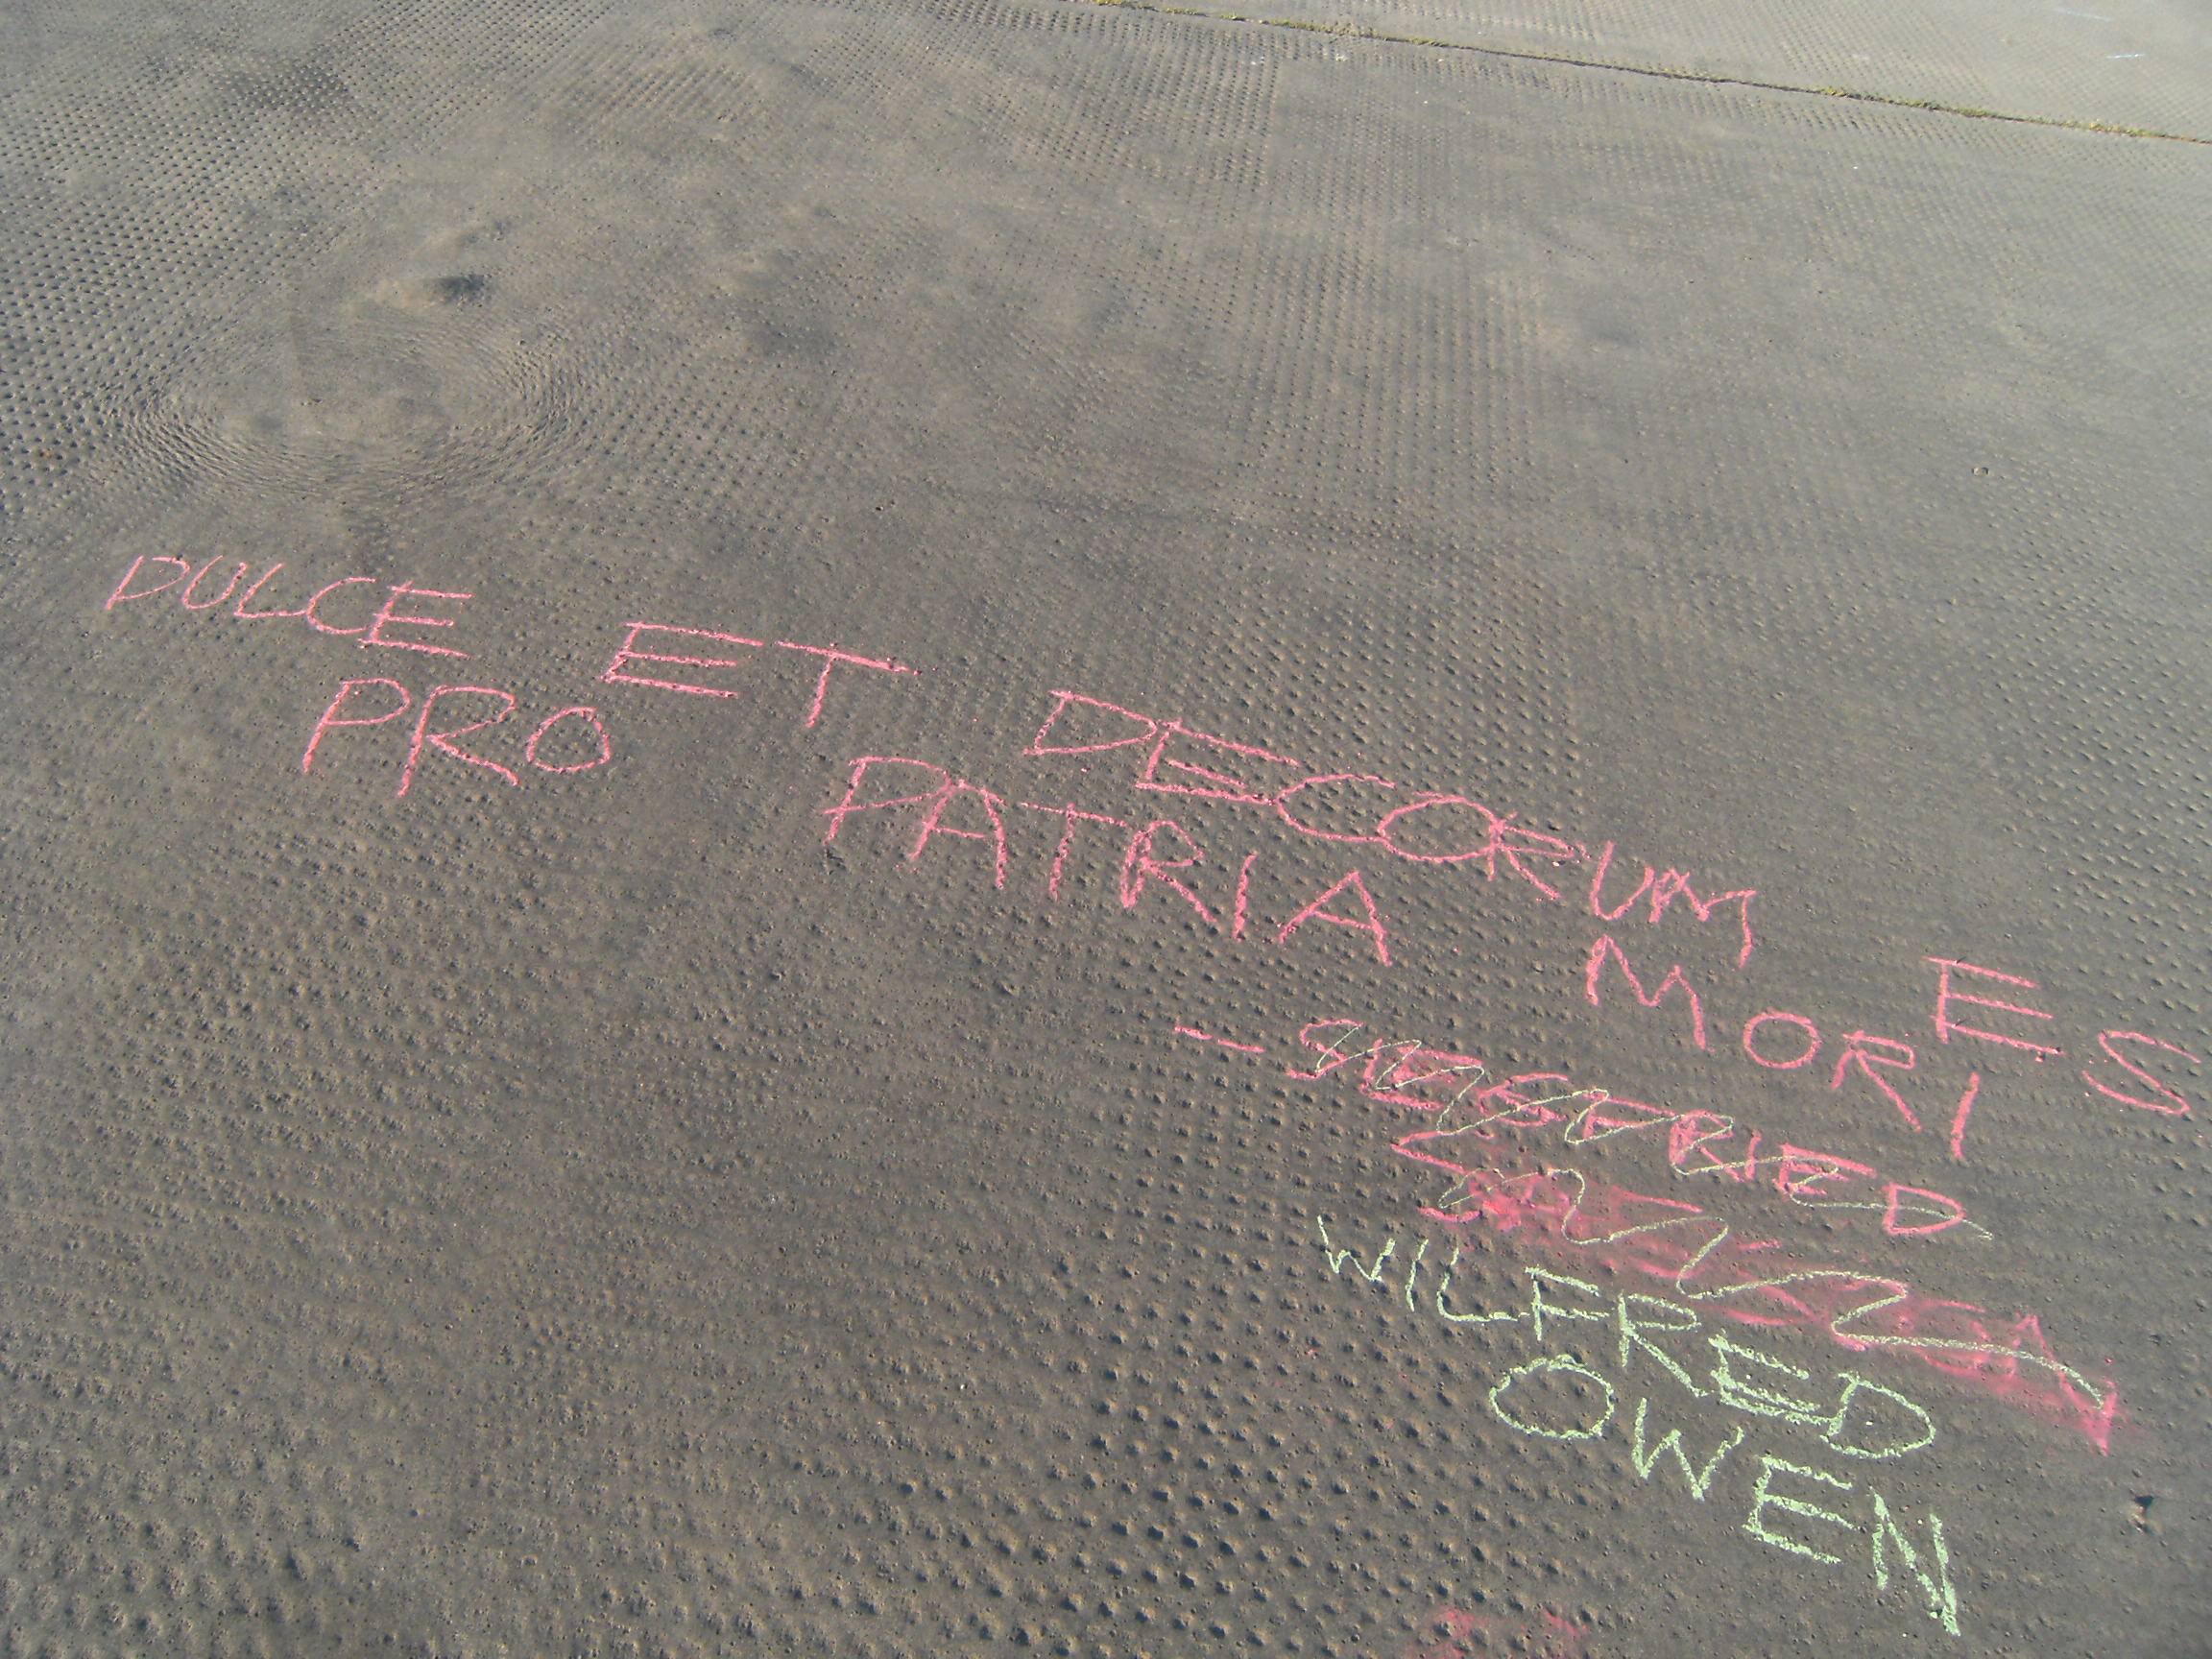 DULCE ET DECORUM ES
PRO PATRIA MORI
- SIEGFRIED
WILFRED
OWEN